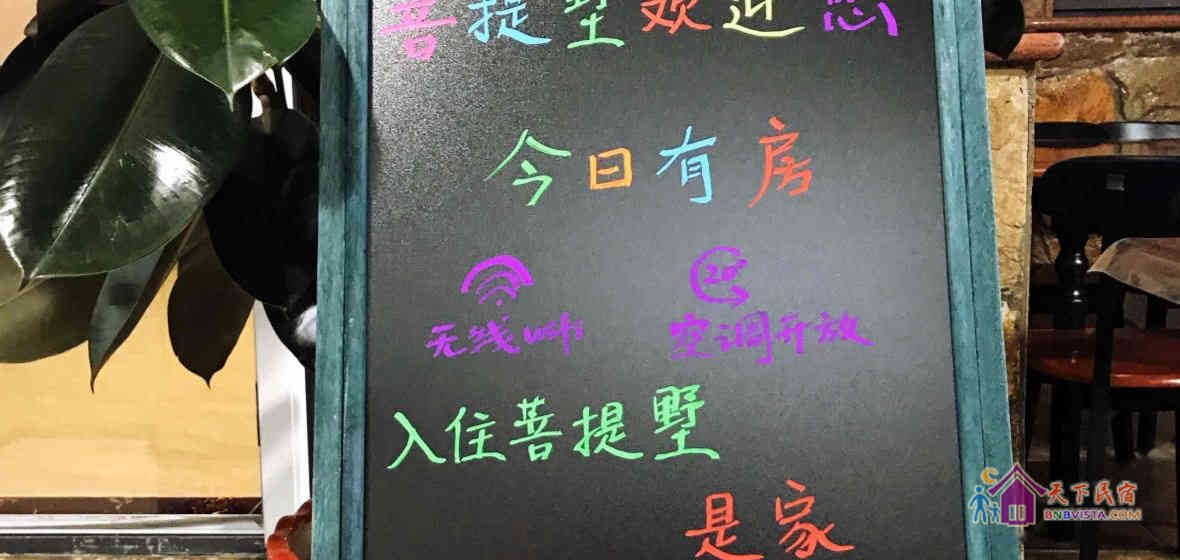 菩提墅欢迎您
今日有房
无线wifi 空调开放
入住菩提墅
是家
天下民宿
BNBVISTA.COM